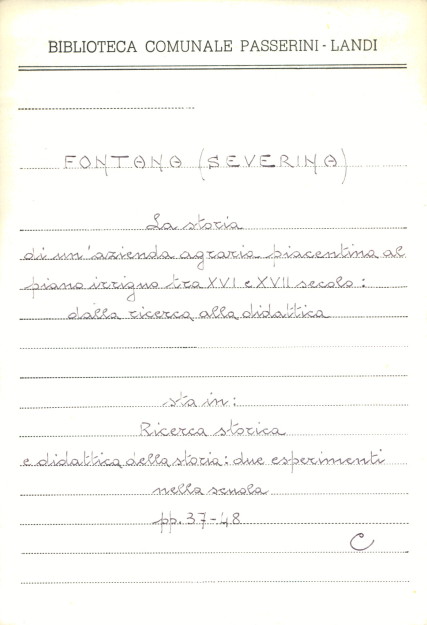 BIBLIOTECA COMUNALE PASSERINI - LANDI
FONTANA (SEVERINA)
La storia
di un'azienda agraria piacentina al
piano irriguo tra XVI e XVII secolo:
dalla ricerca alla didattica
sta in:
Ricerca storica
e didattica della storia: due esperimenti
nella scuola
pp. 37-48
C